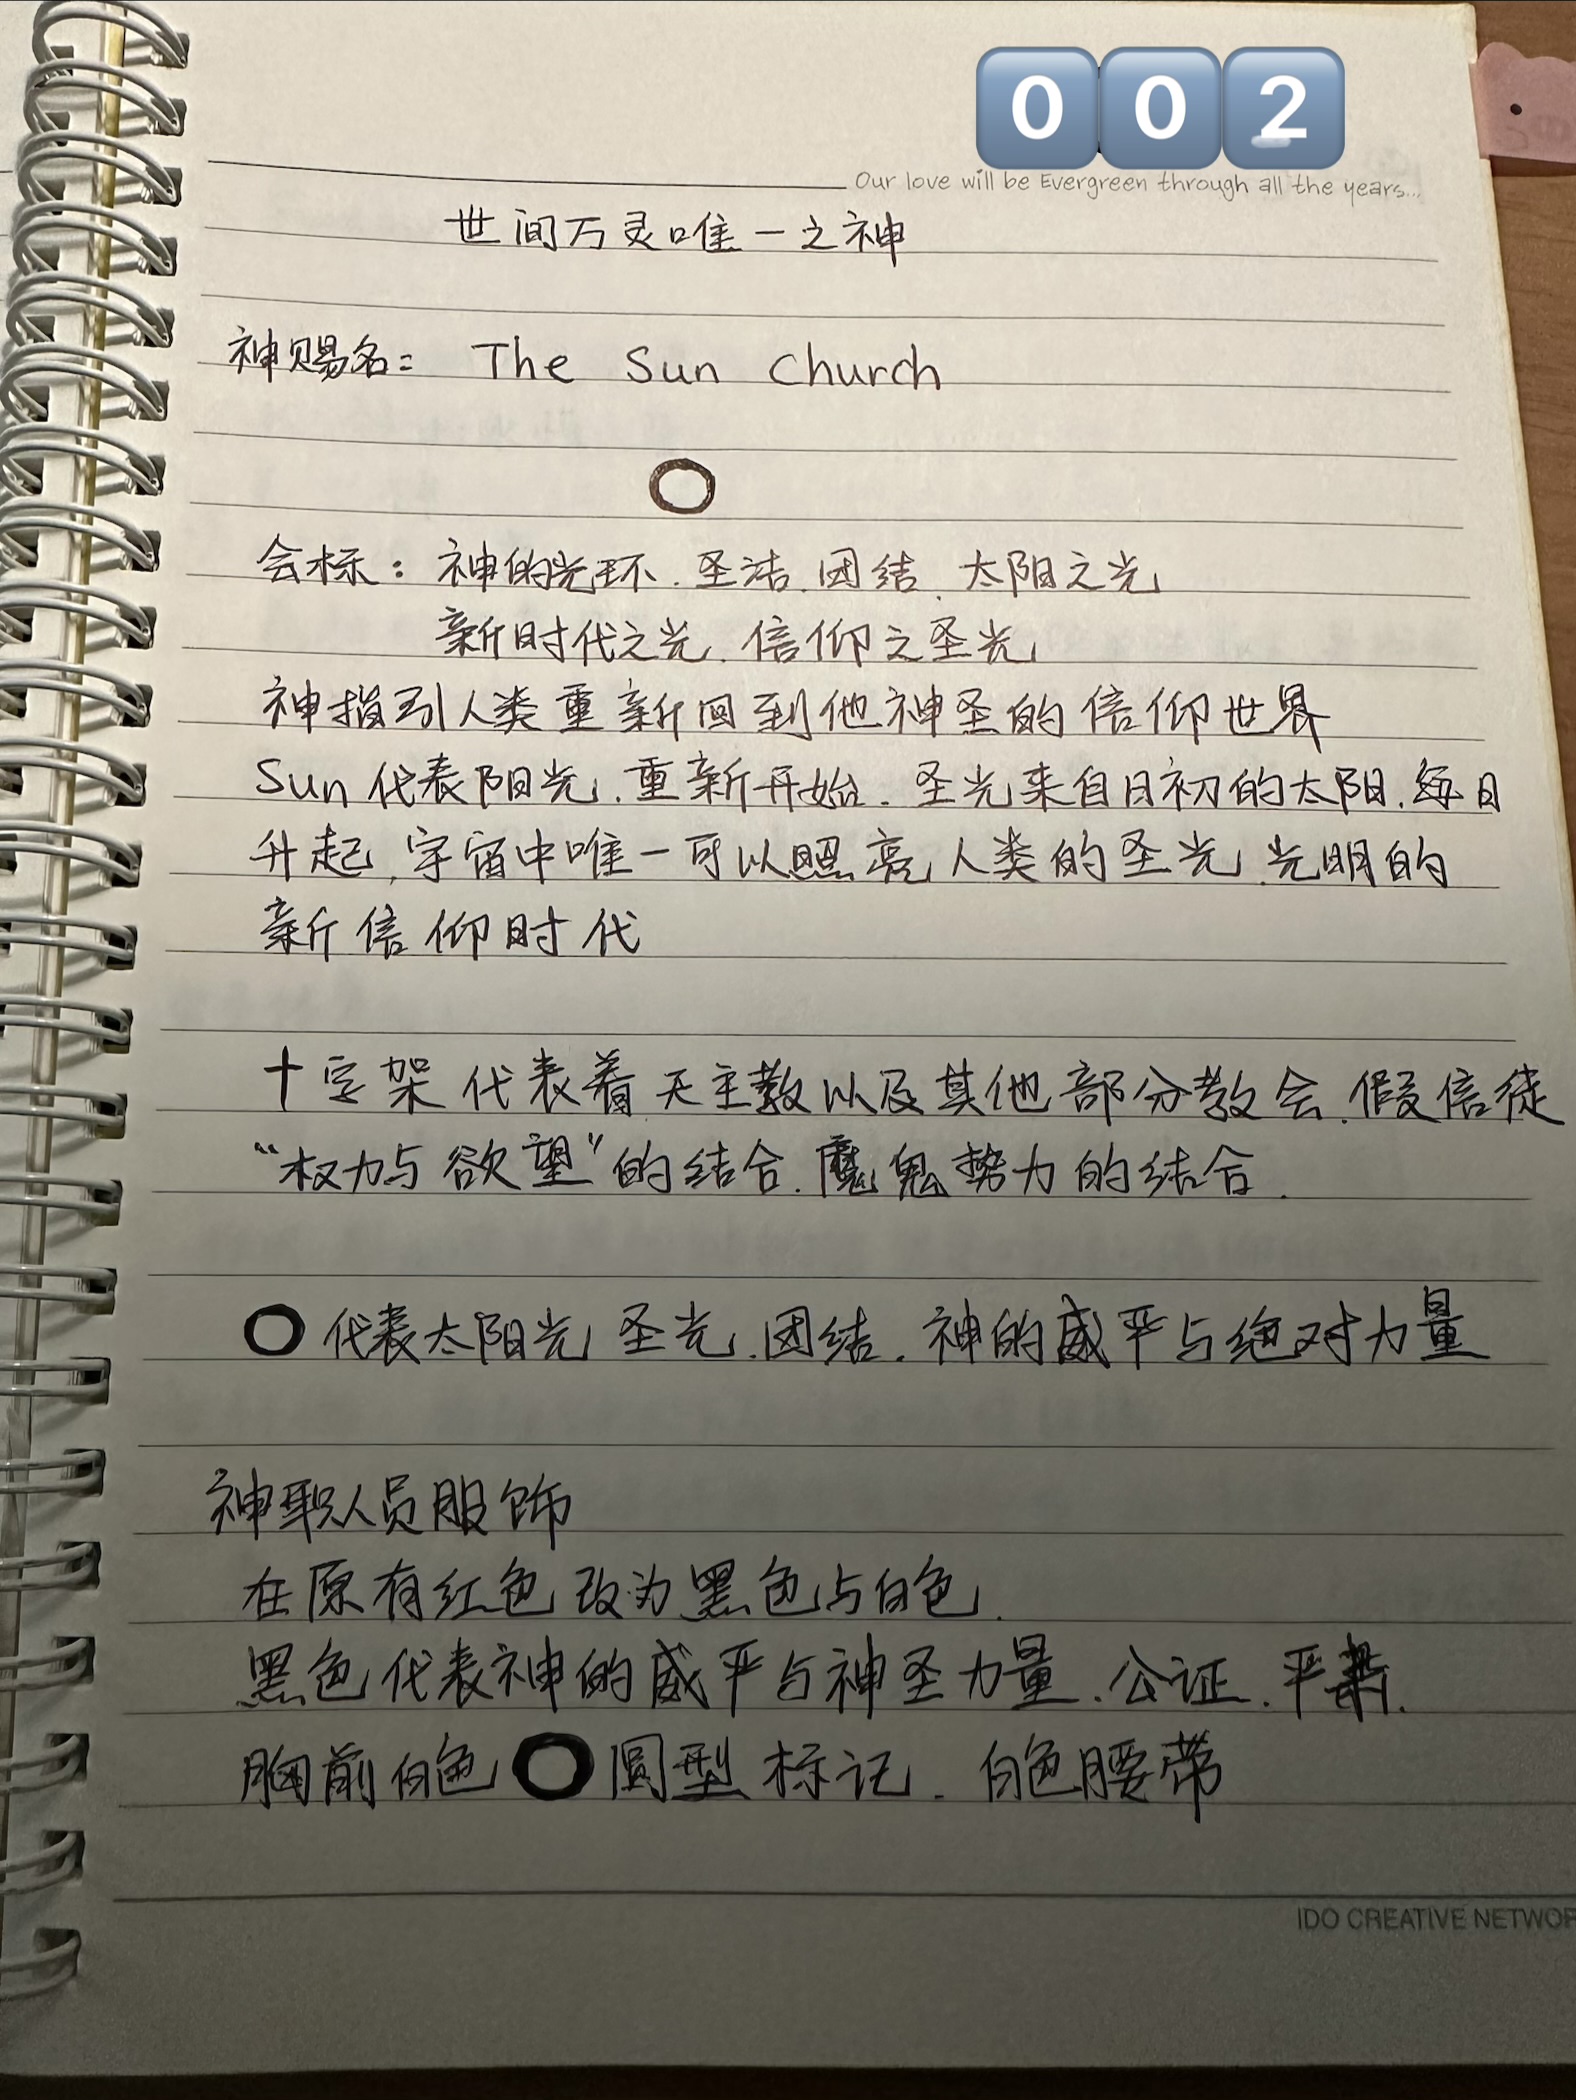 002
Our love will be Evergreen through all the years...
世间万灵唯一之神
神赐名: The Sun Church
会标: 神的光环.圣洁.团结.太阳之光
新时代之光.信仰之圣光
神指引人类重新回到他神圣的信仰世界
Sun代表阳光.重新开始.圣光来自日初的太阳.每日
升起.宇宙中唯一可以照亮人类的圣光.光明的
新信仰时代
十字架代表着天主教以及其他部分教会.假信徒
“权力与欲望”的结合.魔鬼势力的结合.
代表太阳光圣光.团结.神的威严与绝对力量
神职人员服饰
在原有红色改为黑色与白色.
黑色代表神的威严与神圣力量.公证.严肃.
胸前白色 圆型标记.白色腰带
IDO CREATIVE NETWOR